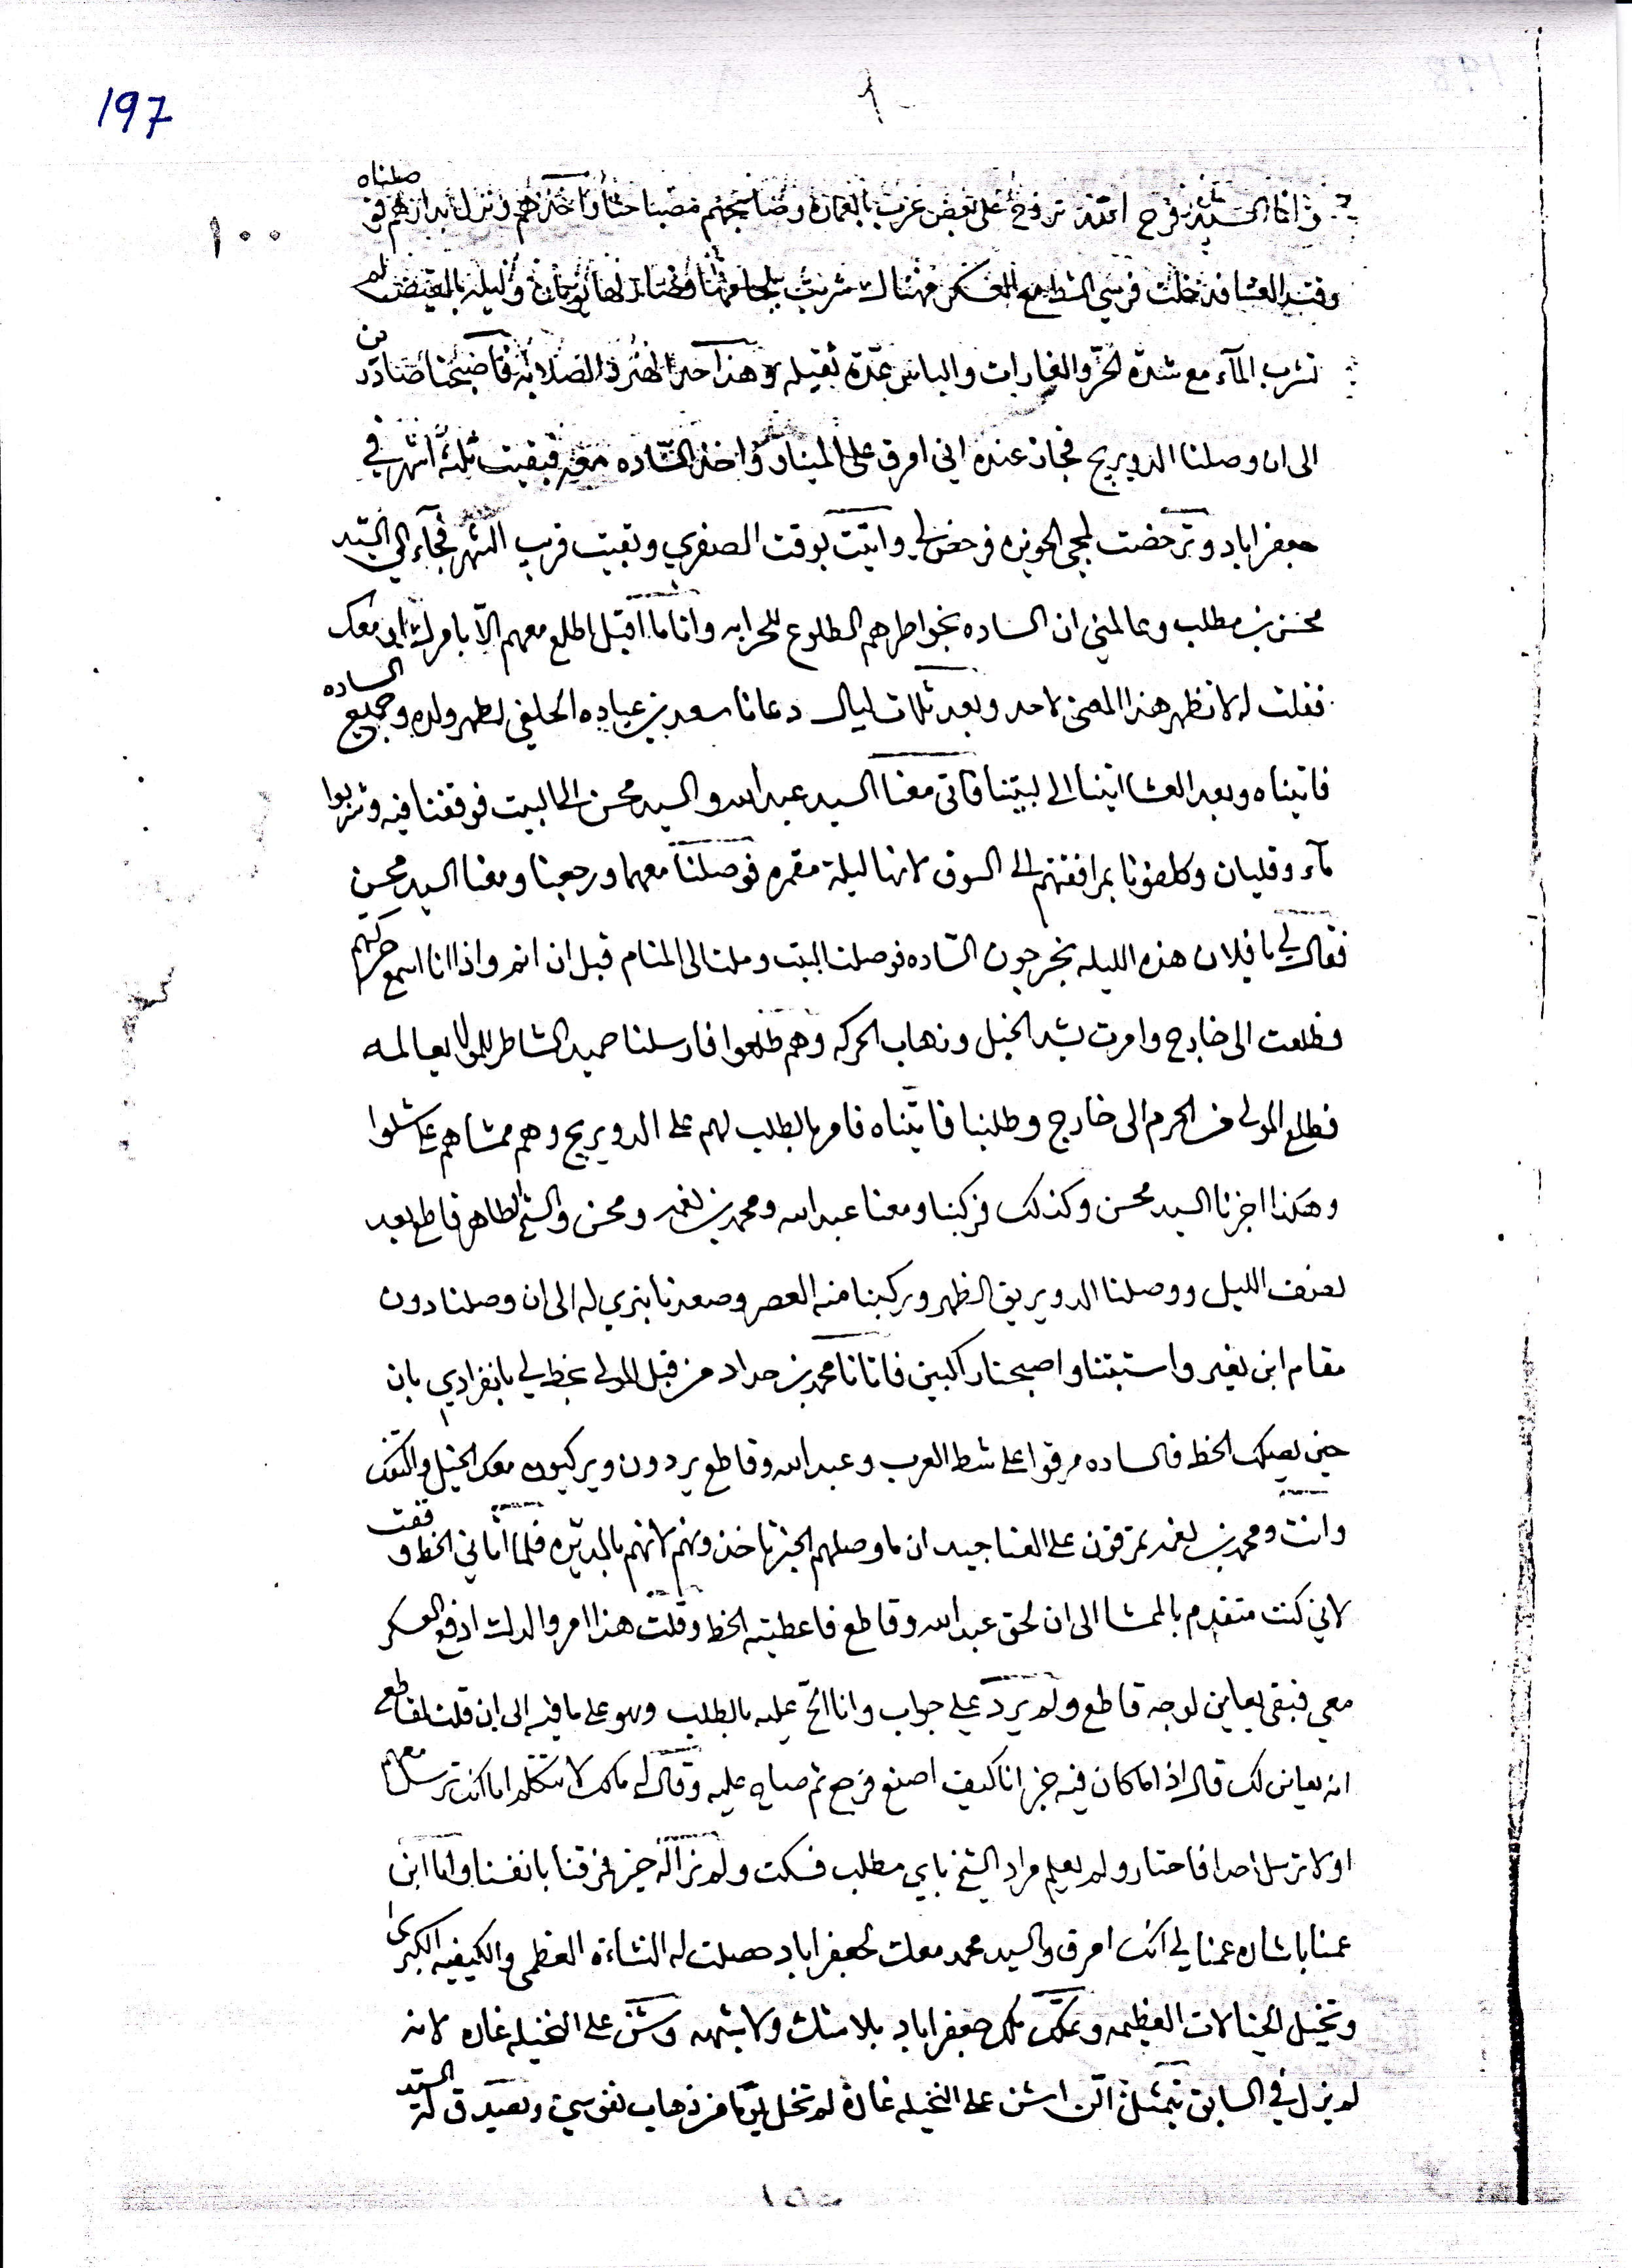 197
١٠٠
واما السيد فرج الله تروح على بعض عرب بالعماره وصابحهم مصباحا واخذهم ونزل بدارهم فوصلناه
وقت العشا فدخلت فرسي الشط مع العسكر فهناك شربت بلجامها وصار لها يومان وليله بالقيض لم
تشرب المآء مع شدة الحرّ والغارات والباس عدّة ثقيله وهذا حد الهنر والصلابه فاصبحنا صادرين
الى ان وصلنا الدويريج فجاز عنده اني امرق على الميناو واخذ السّاده معه فبقيت ثلثة اشهر في
جعفراباد وترخصت لمجي الحويزه فرخص لي واتيت بوقت الصفري وبقيت قرب الشهر فجآء الي السيد
محسن بن مطلب وعالمني ان الساده بخواطرهم الطلوع للحرابه وانا ما اقبل اطلع معهم الّا بامرك اني معك
فقلت له لا تظهر هذا المعنى لاحد وبعد ثلاث ليال دعانا سعد بن عباده الحلفي لطهر ولده وجميع الساده
فاتيناه وبعد العشا اتينا الى بيتنا فاتى معنا السيد عبد الله والسيد محسن الى البيت فوقفنا فيه وشربوا
مآء وقليان وكلفونا بمرافقتهم الى السوق لانها ليلة مقمره فوصلنا معهما ورجعنا ومعنا السيد محسن
فقال لي يا فلان هذه الليله يخرجون السّاده فوصلنا البيت وملنا الى المنام قبل ان انم واذا انا اسمع حركتهم
فطلعت الى خارج وامرت بشد الخيل وذهاب الحركه وهم طلعوا فارسلنا حميد الشاطر للمولا يعالمه
فطلع المولى من الحرم الى خارج وطلبنا فاتيناه فامر بالطلب لهم على الدويريج وهم ممشاهم على شلوا
وهكذا اخبرنا السيد محسن وكذلك فركبنا ومعنا عبد الله ومحمد بن نغمد ومحسن والشيخ الطاهر قاطع بعد
نصف الليل ووصلنا الدويريق الظهر وركبنا منه العصر وصعدنا بنري له الى ان وصلنا دون
مقام ابن نغير واستبتنا واصبحنا راكبين فاتانا محمد بن حداد من قبل المولى بخط لي بانفرادي بان
حين يصلك الخط فالساده مرقوا على شط العرب وعبد الله وقاطع يردون ويركبون معك الخيل والتفنك
وانت ومحمد بن نغمد تمرقون على العناجيد ان ما وصلهم الخبر تاخذونهم لانهم بالديره فلما اتاني الخط وقفت
لاني كنت متقدم بالممشا الى ان لحق عبد الله وقاطع فاعطيته الخط وقلت هذا امر والدك ادفع العسكر
معي فبقى يعاين لوجه قاطع ولم يردّ علي جواب وانا الحّ عليه بالطلب وهو على ما فيه الى ان قلت لقاطع
انه يعاين لك قال اذا ما كان فيه خير انا كيف اصنع فرجع ثم صاح عليه وقال له مالك لا تتكلم اما انك ترسل معهم
او لا ترسل احدا فاحتار ولم يعلم مراد الشيخ باي مطلب فسكت ولم نرا له خير فمرقنا بانفسنا واما ابن
عمنا باشاره عمنا لي انك امرق والسيد محمد معك لجعفراباد حصلت له النشاءة العظمى والكيفيه الكبرى
وتخيل الخيالات العظيمه وتملك ملك جعفراباد بلا شك ولا شبهه وشن على النخيله غاره لانه
لم يزل في السابق يتمثل الن اشن على النخيله غارة لم تخل يوما من ذهاب نفوس ويصدق له السيد